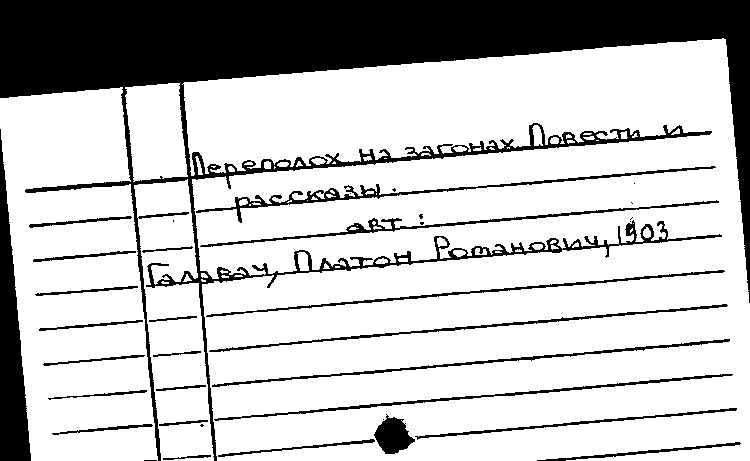 Переполох на загонах Повести и
рассказы.
авт :
Галавач, Платон Романович, 1903